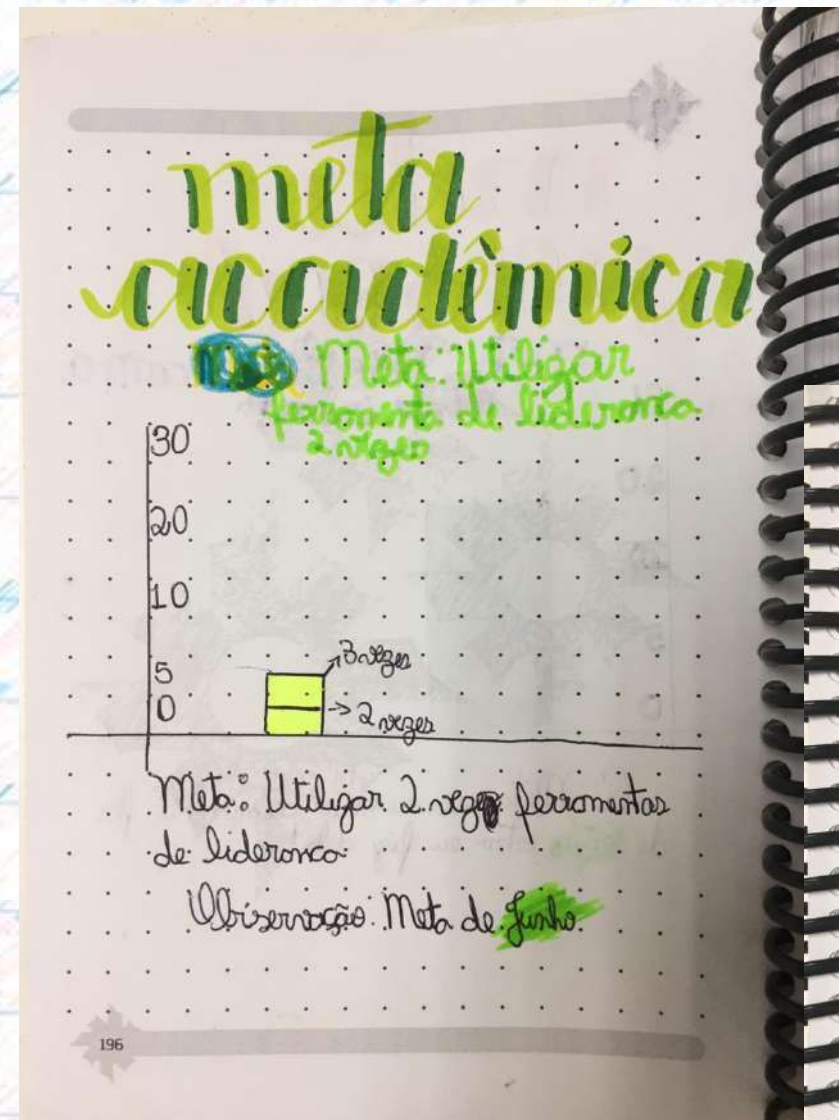 meta
acadêmica
Meta: Utilizar
ferramenta de lideronca
2 vezes
30
20
10
5
0
3 vezes
2 vezes
Meta: Utilizar 2 vezes ferramentas
de lideronca
Obiservação: Meta de Junho.
196